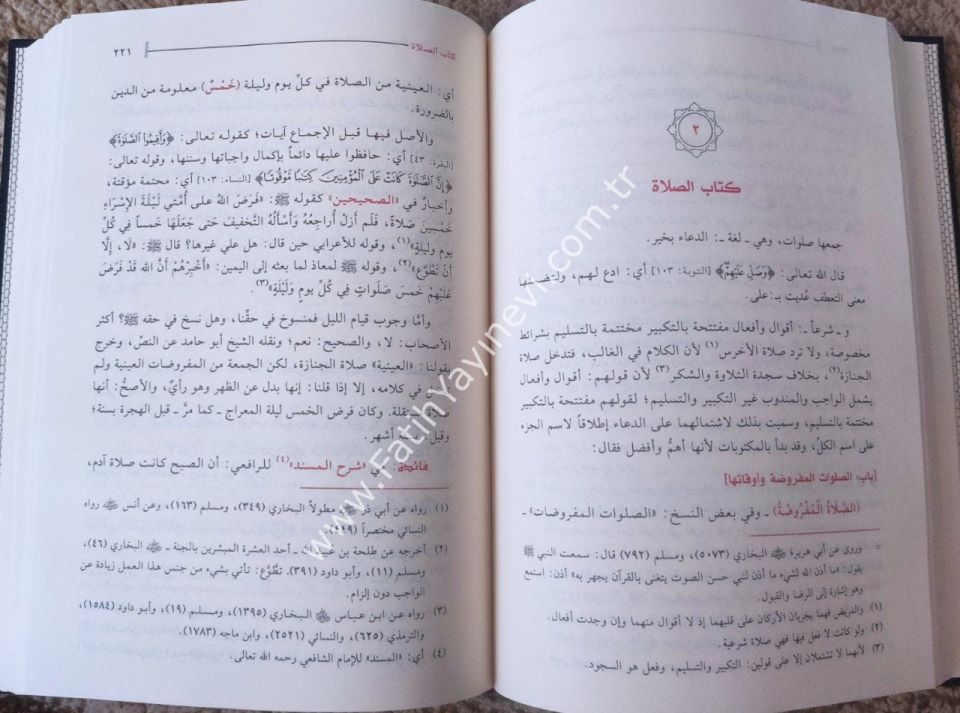 ٢
كتاب الصلاة
جمعها صلوات، وهي ـ لغة ـ: الدعاء بخير.
قال الله تعالى: ﴿وَصَلِّ عَلَيْهِمْ﴾ [التوبة: ١٠٣] أي: ادع لهم، ولتضمنها
معنى التعطف عُديت بـ: على.
و ـ شرعاً ـ: أقوال وأفعال مفتتحة بالتكبير مختتمة بالتسليم بشرائط
مخصوصة، ولا ترد صلاة الأخرس(١) لأن الكلام في الغالب، فتدخل صلاة
الجنازة(٢)، بخلاف سجدة التلاوة والشكر(٣) لأن قولهم: أقوال وأفعال
يشمل الواجب والمندوب غير التكبير والتسليم؛ لقولهم مفتتحة بالتكبير
مختتمة بالتسليم، وسميت بذلك لاشتمالها على الدعاء إطلاقاً لاسم الجزء
على اسم الكل، وقد بدأ بالمكتوبات لأنها أهم وأفضل فقال:
[باب: الصلوات المفروضة وأوقاتها]
(الصَّلَاةُ الْمَفْرُوضَةُ) ـ وفي بعض النسخ: «الصلوات المفروضات» ـ
= وروى عن أبي هريرة ﷺ البخاري (٥٠٧٣)، ومسلم (٧٩٢) قال: سمعت النبي ﷺ
يقول: «ما أذن الله لشيء ما أذن لنبي حسن الصوت يتغنى بالقرآن يجهر به» أذن: استمع
وهو إشارة إلى الرضا والقبول.
(١) والمريض فهما بجريان الأركان على قلبهما إذ لا أقوال منهما وإن وجدت أفعال.
(٢) ولو كانت لا فعل فيها فهي صلاة شرعية.
(٣) لأنهما لا تشتملان إلا على قولين: التكبير والتسليم، وفعل هو السجود.
كتاب الصلاة ٢٢١
أي: العينية من الصلاة في كلِّ يوم وليلة (خَمْسٌ) معلومة من الدين
بالضرورة.
والأصل فيها قبل الإجماع آيات؛ كقوله تعالى: ﴿وَأَقِيمُوا الصَّلَوٰةَ﴾
[البقرة: ٤٣] أي: حافظوا عليها دائماً بإكمال واجباتها وسننها، وقوله تعالى:
﴿إِنَّ الصَّلَوٰةَ كَانَتْ عَلَى الْمُؤْمِنِينَ كِتَٰبًا مَّوْقُوتًا﴾ [النساء: ١٠٣] أي: محتمة مؤقتة،
وأخبارٌ في «الصحيحين» كقوله ﷺ: «فَرَضَ اللهُ على أُمَّتي لَيْلَةَ الإِسْرَاءِ
خَمْسِينَ صَلَاةً، فَلَم أَزَلْ أُرَاجِعُهُ وَأَسْأَلُهُ التَّخْفِيفَ حَتى جَعَلَهَا خَمساً في كُلِّ
يوم وليلةٍ»(١)، وقوله للأعرابي حين قال: هل علي غيرها؟ قال ﷺ: «لَا، إِلَّا
أَنْ تَطَّوَّعَ»(٢)، وقوله ﷺ لمعاذ لما بعثه إلى اليمن: «أَخْبِرْهُمْ أَنَّ الله قَدْ فَرَضَ
عَلَيْهِمْ خَمسَ صَلَواتٍ فِي كُلِّ يومٍ وَلَيْلَةٍ»(٣).
وأمَّا وجوب قيام الليل فمنسوخ في حقِّنا، وهل نسخ في حقه ﷺ؟ أكثر
الأصحاب: لا، والصحيح: نعم؛ ونقله الشيخ أبو حامد عن النصِّ، وخرج
بقولنا: «العينية» صلاة الجنازة، لكن الجمعة من المفروضات العينية ولم
في كلامه، إلا إذا قلنا: إنها بدل عن الظهر وهو رأيٌ، والأصحُّ: أنها
صلاة مستقلة. وكان فرض الخمس ليلة المعراج ـ كما مرَّ ـ قبل الهجرة بسنة؛
وقيل: أشهر.
فائدة: في «شرح المسند»(٤) للرافعي: أن الصبح كانت صلاة آدم،
(١) رواه عن أبي ذر ﷺ مطولاً البخاري (٣٤٩)، ومسلم (١٦٣)، وعن أنس ﷺ رواه
النسائي مختصراً (٤٤٩).
(٢) أخرجه عن طلحة بن عبيد ـ أحد العشرة المبشرين بالجنة ـ البخاري (٤٦)،
ومسلم (١١)، وأبو داود (٣٩١). تطَّوَّع: تأتي بشيء من جنس هذا العمل زيادة عن
الواجب دون إلزام.
(٣) رواه عن ابن عباس ﷺ البخاري (١٣٩٥)، ومسلم (١٩)، وأبو داود (١٥٨٤)،
والترمذي (٦٢٥)، والنسائي (٢٥٢١)، وابن ماجه (١٧٨٣).
(٤) أي: «المسند» للإمام الشافعي رحمه الله تعالى.
www.FatihYayinevi.com.tr